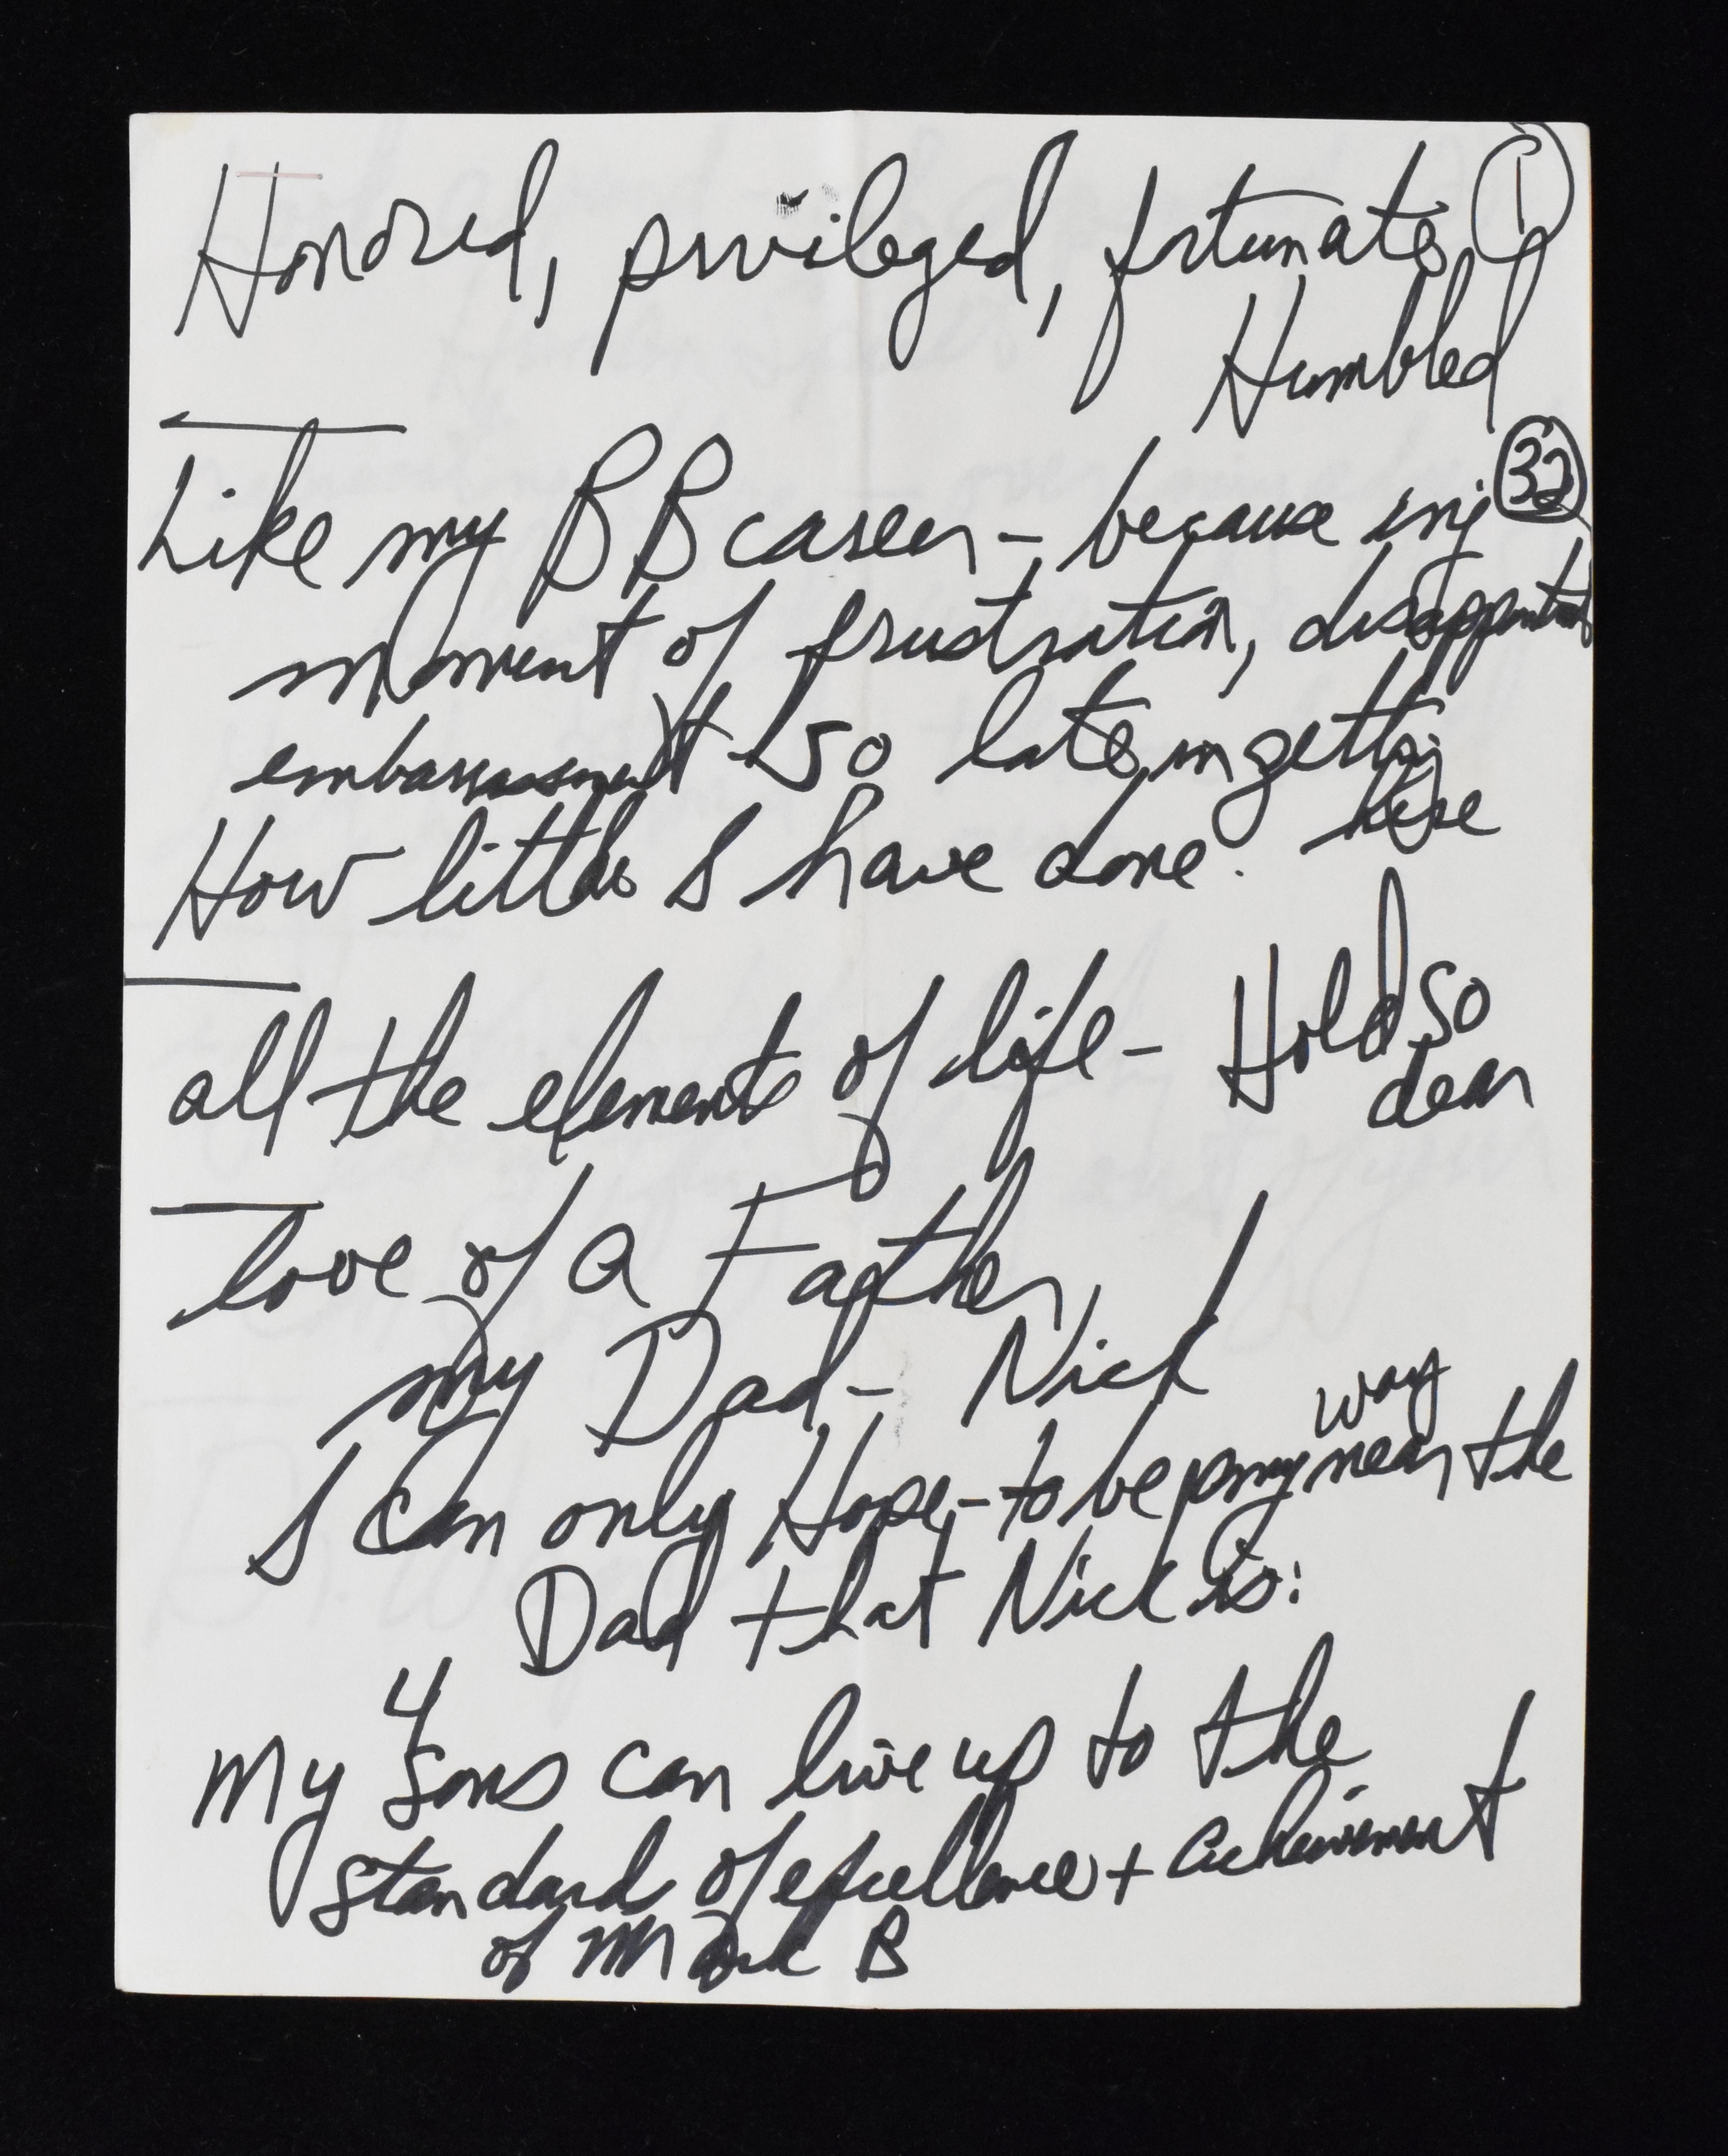 Honored, privileged, fortunate, ①
Humbled
Like my BB career - because inj ㉜
moment of frustration, disappointment
embarrassment so late in getting
here
How little I have done.
all the elements of life - Hold so
dear
love of a Father
my Dad - Nick
way
I can only Hope - to be near the
Dad that Nick is:
4
My sons can live up to the
standard of excellence + achievement
of Mark B